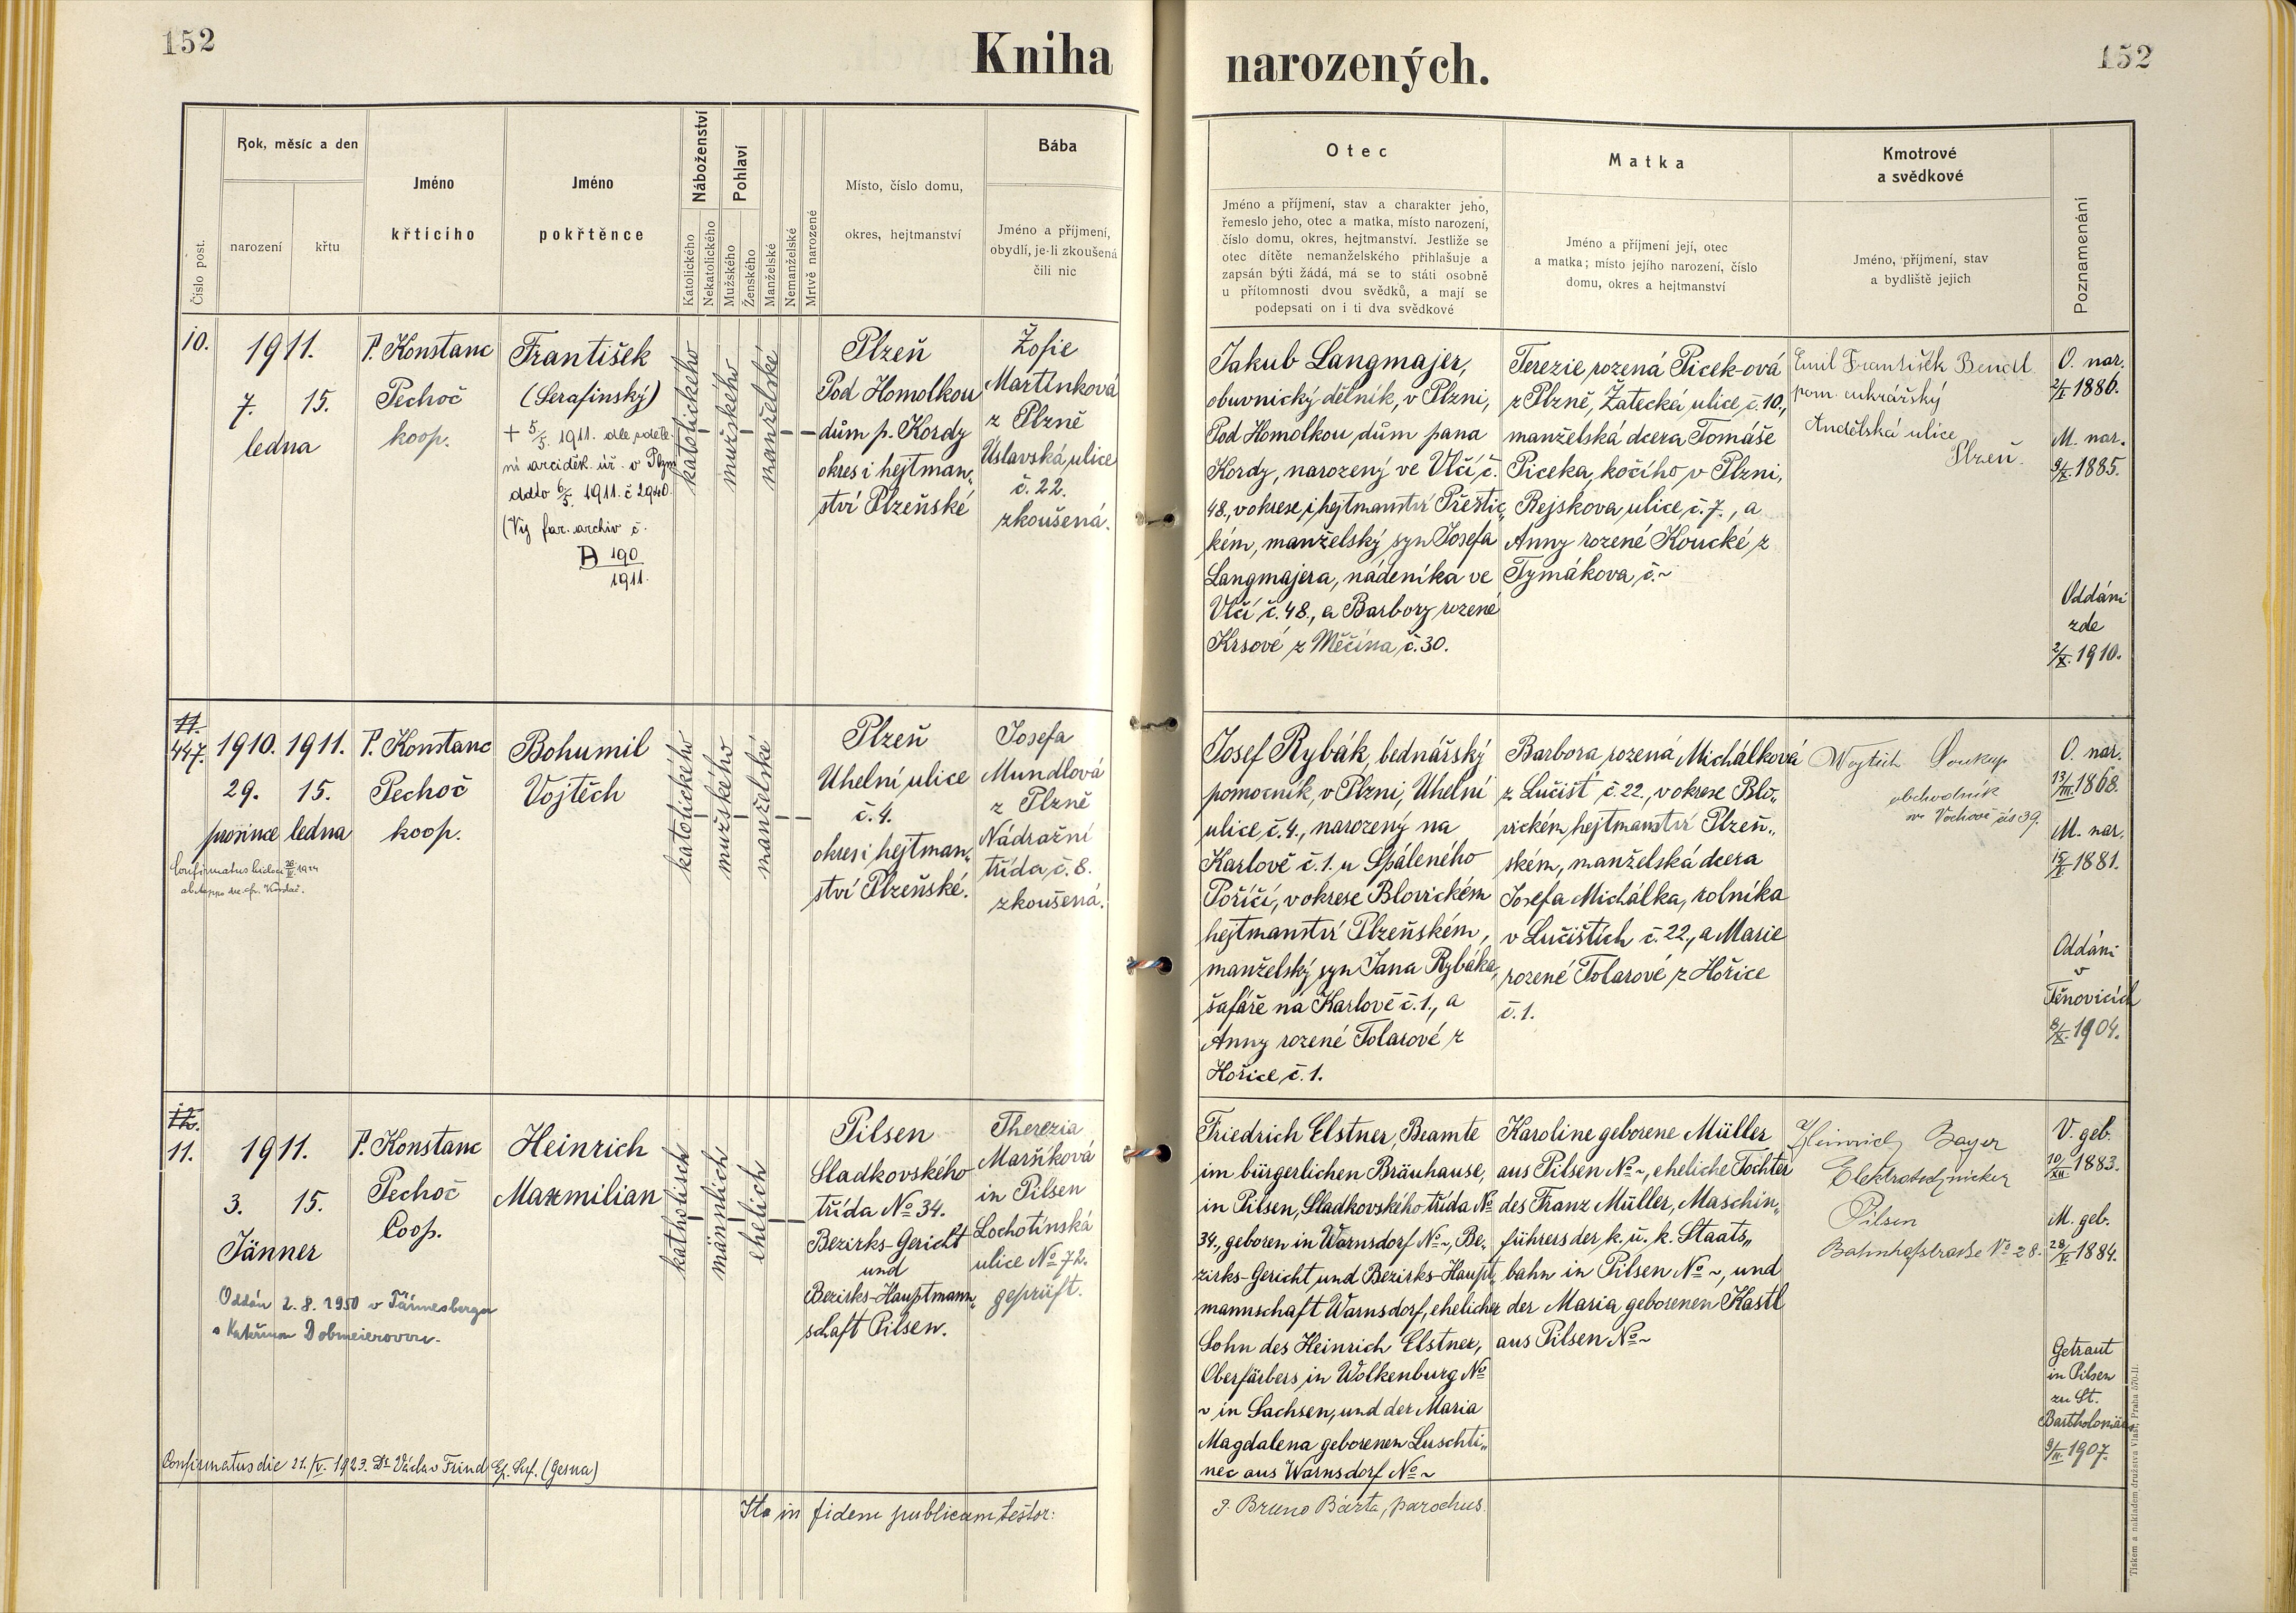 152
Kniha
narozených.
152
Číslo post.
Rok, měsíc a den
narození
křtu
Jméno
křtícího
Jméno
pokřtěnce
Náboženství
Katolického
Nekatolického
Pohlaví
Mužského
Ženského
Manželské
Nemanželské
Mrtvě narozené
Místo, číslo domu,
okres, hejtmanství
Bába
Jméno a příjmení,
obydlí, je-li zkoušená
čili nic
Otec
Jméno a příjmení, stav a charakter jeho,
řemeslo jeho, otec a matka, místo narození,
číslo domu, okres, hejtmanství. Jestliže se
otec dítěte nemanželského přihlašuje a
zapsán býti žádá, má se to státi osobně
u přítomnosti dvou svědků, a mají se
podepsati on i ti dva svědkové
Matka
Jméno a příjmení její, otec
a matka; místo jejího narození, číslo
domu, okres a hejtmanství
Kmotrové
a svědkové
Jméno, příjmení, stav
a bydliště jejich
Poznamenání
10.
1911.
7. 15.
ledna
P. Konstanc
Pechoč
koop.
František
(Serafinský)
+ 5/5. 1911. dle sděle-
ní arciděk. úř. v Plzni
ddto 6/5. 1911. č 2940.
(Viz far. archiv č.
D 190
1911.
katolického
mužského
manželské
Plzeň
Pod Homolkou
dům p. Kordy
okres i hejtman„
ství Plzeňské
Žofie
Martínková
z Plzně
Úslavská ulice
č. 22.
zkoušená.
Jakub Langmajer,
obuvnický dělník, v Plzni,
Pod Homolkou dům pana
Kordy, narozený ve Vlčí č.
48., v okrese i hejtmanství Přeštic„
kém, manželský syn Josefa
Langmajera, nádeníka ve
Vlčí č. 48., a Barbory rozené
Krsové z Měčína, č. 30.
Terezie rozená Picek-ová
z Plzně, Žatecká ulice č. 10.,
manželská dcera Tomáše
Piceka, kočího v Plzni,
Rejskova ulice, č. 7., a
Anny rozené Koucké z
Tymákova, č. ~
Emil František Bendl
pom. cukrářský
Andělská ulice
Plzeň.
O. nar.
2/I. 1886.
M. nar.
9/X. 1885.
Oddáni
zde
2/X. 1910.
11.
447.
1910. 1911.
29. 15.
prosince ledna
P. Konstanc
Pechoč
koop.
Bohumil
Vojtěch
katolického
mužského
manželské
Plzeň
Uhelní ulice
č. 4.
okres i hejtman„
ství Plzeňské.
Josefa
Mundlová
z Plzně
Nádražní
třída, č. 8.
zkoušená.
Josef Rybák, bednářský
pomocník, v Plzni, Uhelní
ulice, č. 4., narozený na
Karlově č. 1. u Spáleného
Poříčí, v okrese Blovickém
hejtmanství Plzeňském,
manželský syn Jana Rybáka,
šafáře na Karlově č. 1., a
Anny rozené Tolarové z
Hořice č. 1.
Barbora rozená Michálková
z Lučišť č. 22., v okrese Blo„
vickém, hejtmanství Plzeň„
ském, manželská dcera
Josefa Michálka, rolníka
v Lučištích č. 22., a Marie
rozené Tolarové z Hořice
č. 1.
Vojtěch Soukup
obchodník
ve Vochově čís 39.
O. nar.
13/III. 1868.
M. nar.
1881.
Oddáni
v
Těnovicích
1904.
12.
11.
1911.
3. 15.
Jänner
Oddán 2. 8. 1950 v Tännesbergu
s Kateřinou Dobmeierovou.
P. Konstanc
Pechoč
Coop.
Heinrich
Maxmilian
katholisch
männlich
ehelich
Pilsen
Sladkovského
třída No 34.
Bezirks-Gericht
und
Bezirks-Hauptmann„
schaft Pilsen.
Therezia
Maršíková
in Pilsen
Lochotínská
ulice No 72.
geprüft.
Friedrich Elstner, Beamte
im bürgerlichen Bräuhause,
in Pilsen, Sladkovského třída No
34., geboren in Warnsdorf No ~, Be„
zirks-Gericht und Bezirks-Haupt„
mannschaft Warnsdorf, ehelicher
Sohn des Heinrich Elstner,
Oberfärbers in Wolkenburg No
~ in Sachsen, und der Maria
Magdalena geborenen Luschti„
nec aus Warnsdorf No ~
Karoline geborene Müller
aus Pilsen No ~, eheliche Tochter
des Franz Müller, Maschin„
führers der k. u. k. Staats„
bahn in Pilsen No ~, und
der Maria geborenen Kastl
aus Pilsen No ~
Heinrich Bayer
Elektrotechniker
Pilsen
Bahnhofstrasse No 28.
V. geb.
10/XII. 1883.
M. geb.
28/V. 1884.
Getraut
in Pilsen
zu St.
Bartholomäus
1907.
Confirmatus die 21./V. 1923. Dr Václav Frind Ep. Suf. (Gerua)
Ita in fidem publicam testor:
P. Bruno Bárta, parochus.
Tiskem a nákladem družstva Vlasť, Praha 570-II.